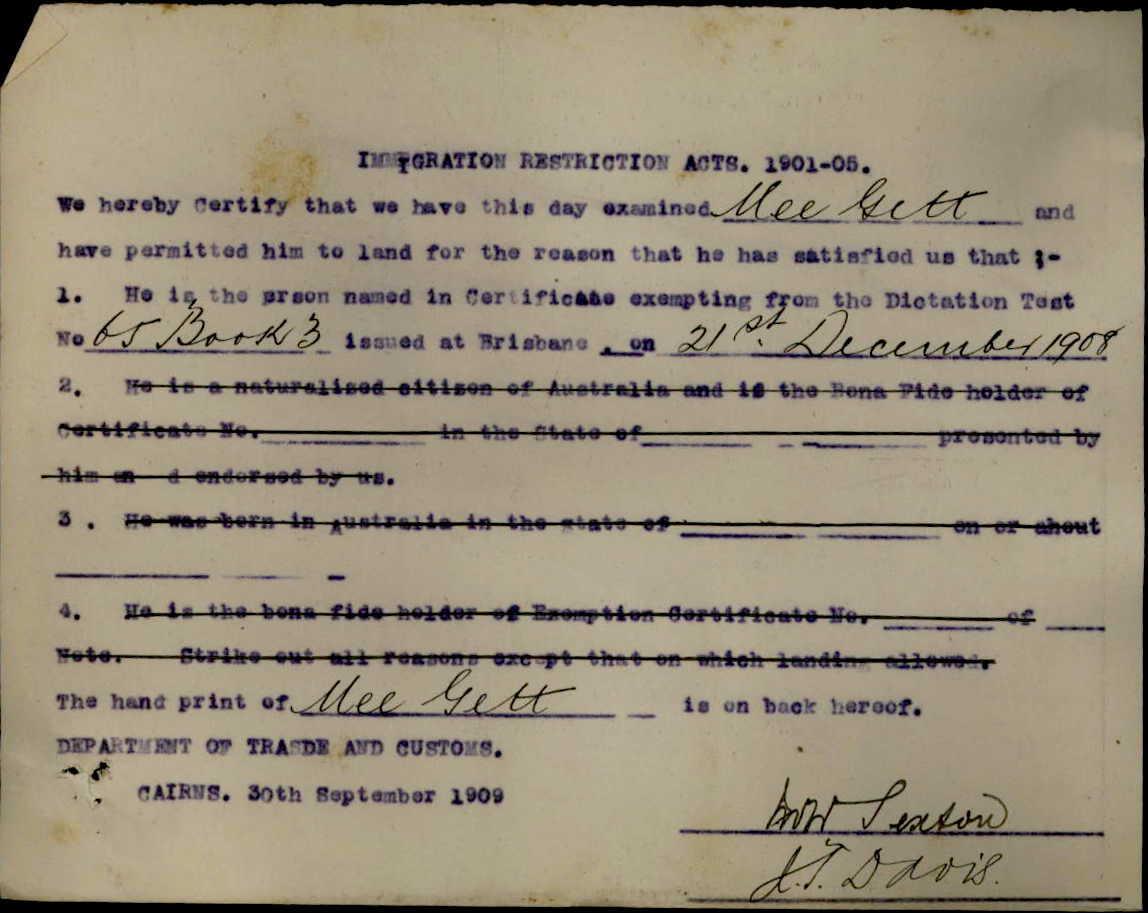 IMMIGRATION RESTRICTION ACTS. 1901-05.
We hereby Certify that we have this day examined Mee Gett and
have permitted him to land for the reason that he has satisfied us that ;-
1. He is the prson named in Certificate exempting from the Dictation Test
No 65 Book 3 issued at Brisbane , on 21st. December 1908
2. He is a naturalised citizen of Australia and is the Bona Fide holder of
Certificate No. in the State of presented by
him an d endorsed by us.
3 . He was born in Australia in the state of on or about
4. He is the bona fide holder of Exemption Certificate No. of
Note. Strike out all reasons except that on which landing allowed.
The hand print of Mee Gett is on back hereof.
DEPARTMENT OF TRASDE AND CUSTOMS.
CAIRNS. 30th September 1909
Sexton
J.T. Davis.